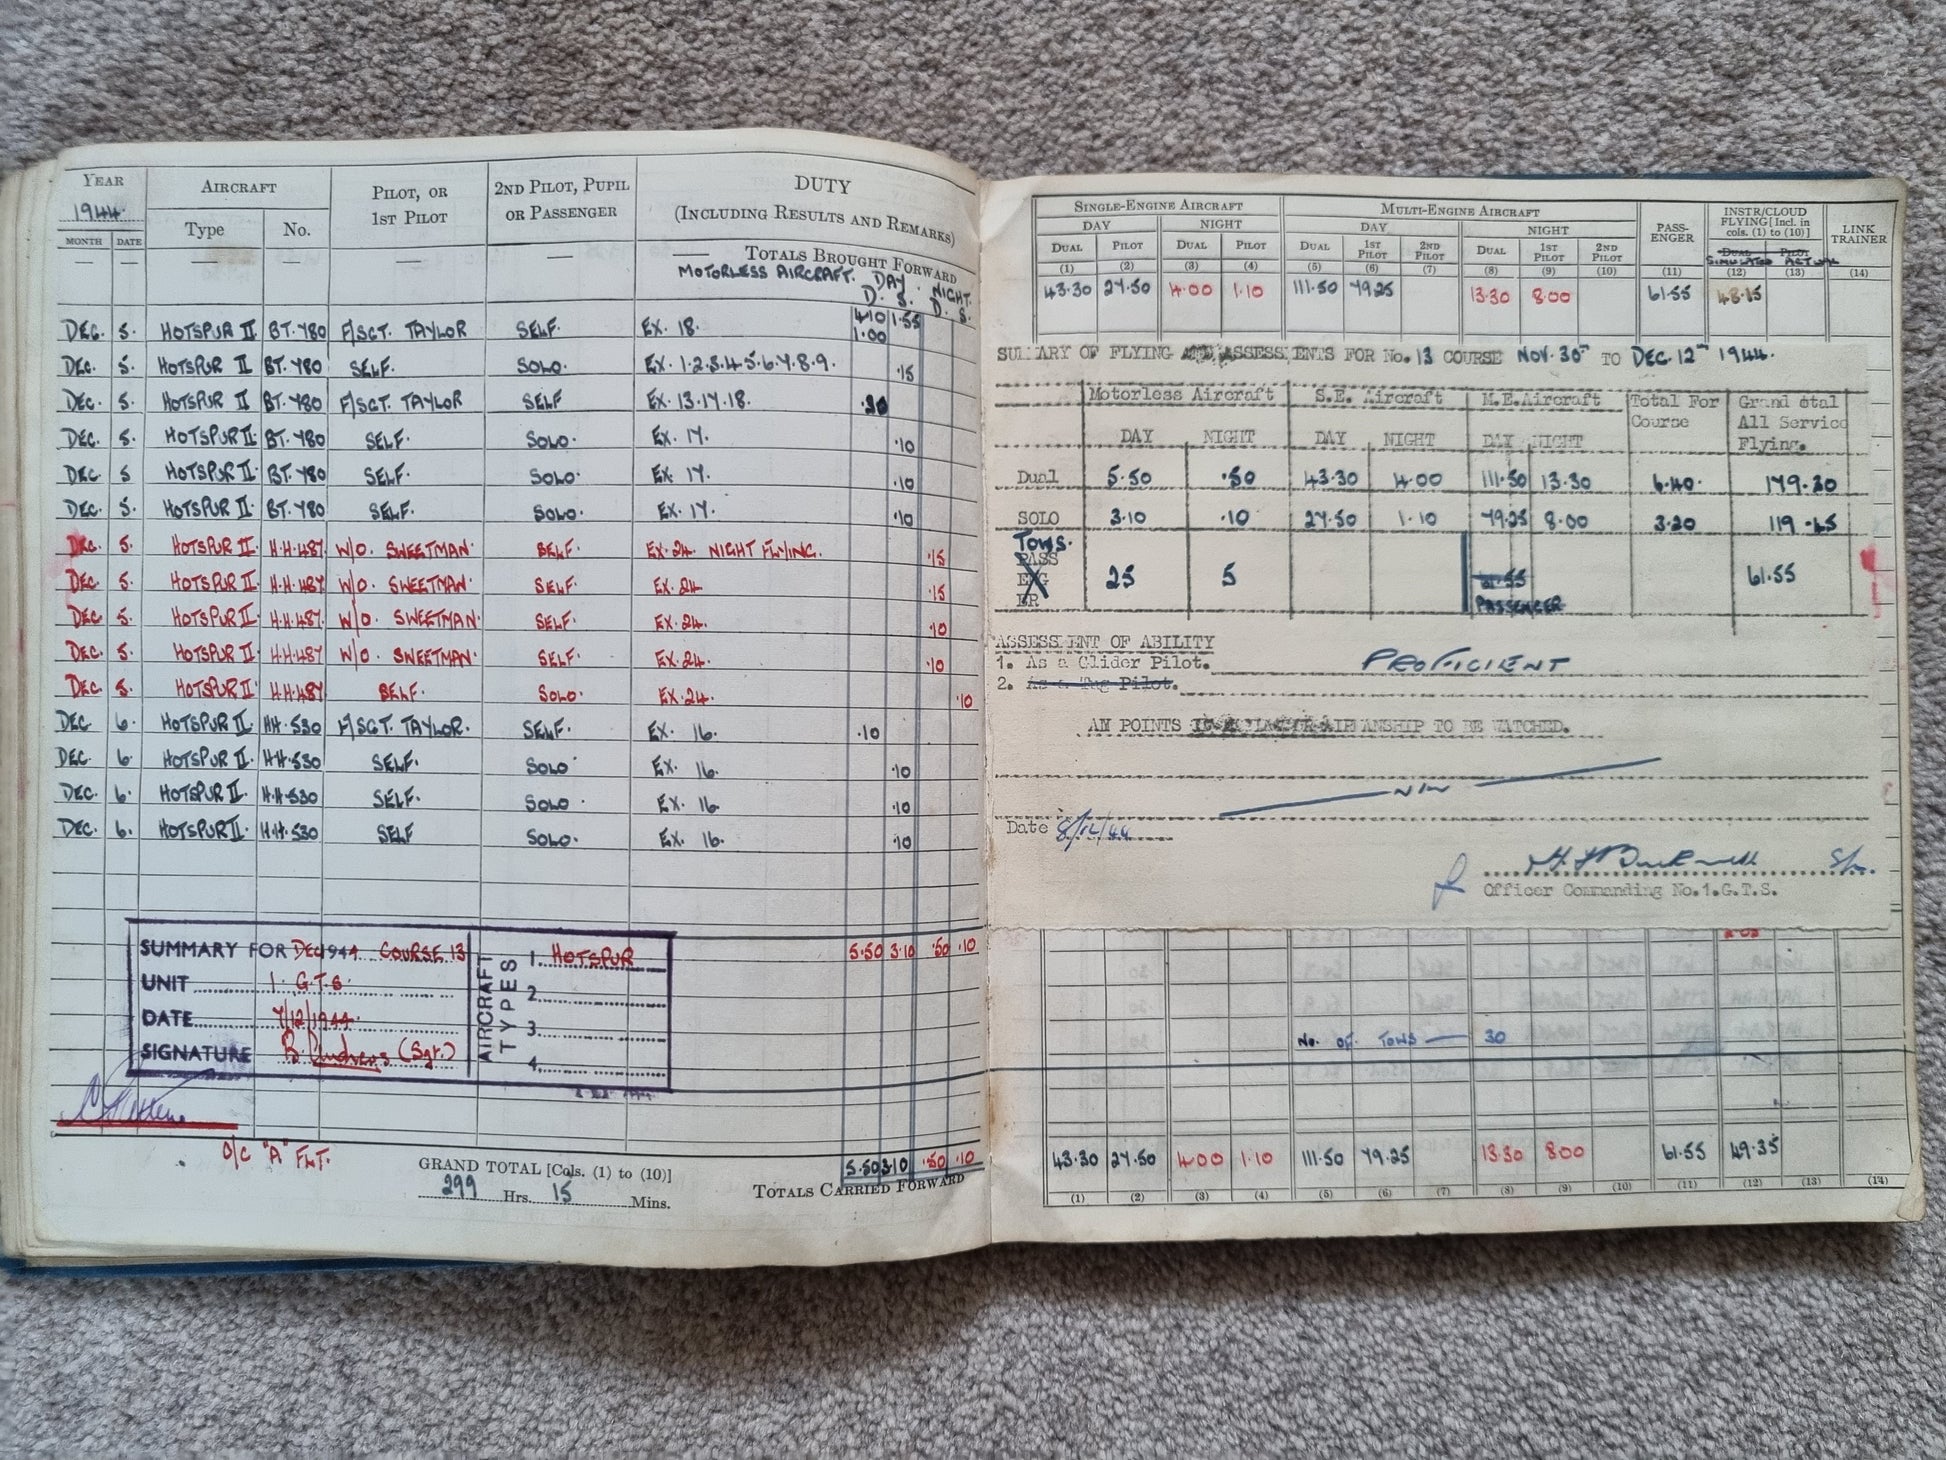 YEAR AIRCRAFT PILOT, OR 1ST PILOT 2ND PILOT, PUPIL OR PASSENGER DUTY (INCLUDING RESULTS AND REMARKS)
1944. Type No.
MONTH DATE
— — — — — TOTALS BROUGHT FORWARD
MOTORLESS AIRCRAFT. DAY. NIGHT.
D. S. D. S.
4.10 1.55
DEC. 5. HOTSPUR II BT.780 F/SGT. TAYLOR SELF. EX. 18. 1.00
DEC. 5. HOTSPUR II BT.780 SELF. SOLO. EX. 1.2.3.4.5.6.7.8.9. .15
DEC. 5. HOTSPUR II BT.780 F/SGT. TAYLOR SELF EX. 13.17.18. .30
DEC. 5. HOTSPUR II. BT.780 SELF. SOLO. EX. 17. .10
DEC. 5 HOTSPUR II. BT.780 SELF. SOLO. EX. 17. .10
DEC. 5. HOTSPUR II. BT.780 SELF. SOLO. EX. 17. .10
DEC. 5. HOTSPUR II. H.H.487 W/O. SWEETMAN. SELF. EX.24. NIGHT FLYING. .15
DEC. 5. HOTSPUR II. H.H.487 W/O. SWEETMAN. SELF. EX.24 .15
DEC. 5. HOTSPUR II H.H.487. W/O. SWEETMAN. SELF. EX.24. .10
DEC. 5. HOTSPUR II H.H.487 W/O. SWEETMAN. SELF. EX.24. .10
DEC. 5. HOTSPUR II. H.H.487 SELF. SOLO. EX.24. .10
DEC 6. HOTSPUR II HH.530 F/SGT. TAYLOR. SELF. EX. 16. .10
DEC 6. HOTSPUR II. H.H.530 SELF. SOLO. EX. 16. .10
DEC. 6. HOTSPUR II. H.H.530 SELF. SOLO. EX. 16 .10
DEC. 6. HOTSPUR II. H.H.530 SELF SOLO. EX. 16. .10
5.50 3.10 .50 .10
SUMMARY FOR DEC 1944 COURSE 13
UNIT 1. G.T.S.
DATE 7/12/1944.
SIGNATURE B. Andrews (Sgt.)
AIRCRAFT TYPES
1. HOTSPUR
2.
3.
4.
O/C "A" FLT.
GRAND TOTAL [Cols. (1) to (10)]
299 Hrs. 15 Mins.
5.50 3.10 .50 .10
TOTALS CARRIED FORWARD
SINGLE-ENGINE AIRCRAFT MULTI-ENGINE AIRCRAFT PASSENGER INSTR/CLOUD FLYING [Incl. in cols. (1) to (10)] LINK TRAINER
DAY NIGHT DAY NIGHT
DUAL PILOT DUAL PILOT DUAL 1ST PILOT 2ND PILOT DUAL 1ST PILOT 2ND PILOT DUAL PILOT
SIMULATED ACTUAL
(1) (2) (3) (4) (5) (6) (7) (8) (9) (10) (11) (12) (13) (14)
43.30 27.50 4.00 1.10 111.50 79.25 13.30 8.00 61.55 48.15
SUMMARY OF FLYING AND ASSESSMENTS FOR No. 13 COURSE NOV. 30TH TO DEC 12TH 1944.
Motorless Aircraft S.E. Aircraft M.E.Aircraft Total For Course Grand otal All Service Flying.
DAY NIGHT DAY NIGHT DAY NIGHT
Dual 5.50 .50 43.30 4.00 111.50 13.30 6.40. 179.30
SOLO 3.10 .10 27.50 1.10 79.25 8.00 3.20 119.45
TOWS.
PASSENGER 25 5 61.55 61.55
PASSENGER
ASSESSMENT OF ABILITY
1. As a Glider Pilot. PROFICIENT
2. As a Tug Pilot.
AN POINTS IN AIRMANSHIP TO BE WATCHED.
NIL
Date 8/12/44
Officer Commanding No.1.G.T.S.
No. OF TOWS — 30
43.30 27.50 4.00 1.10 111.50 79.25 13.30 8.00 61.55 49.35
(1) (2) (3) (4) (5) (6) (7) (8) (9) (10) (11) (12) (13) (14)